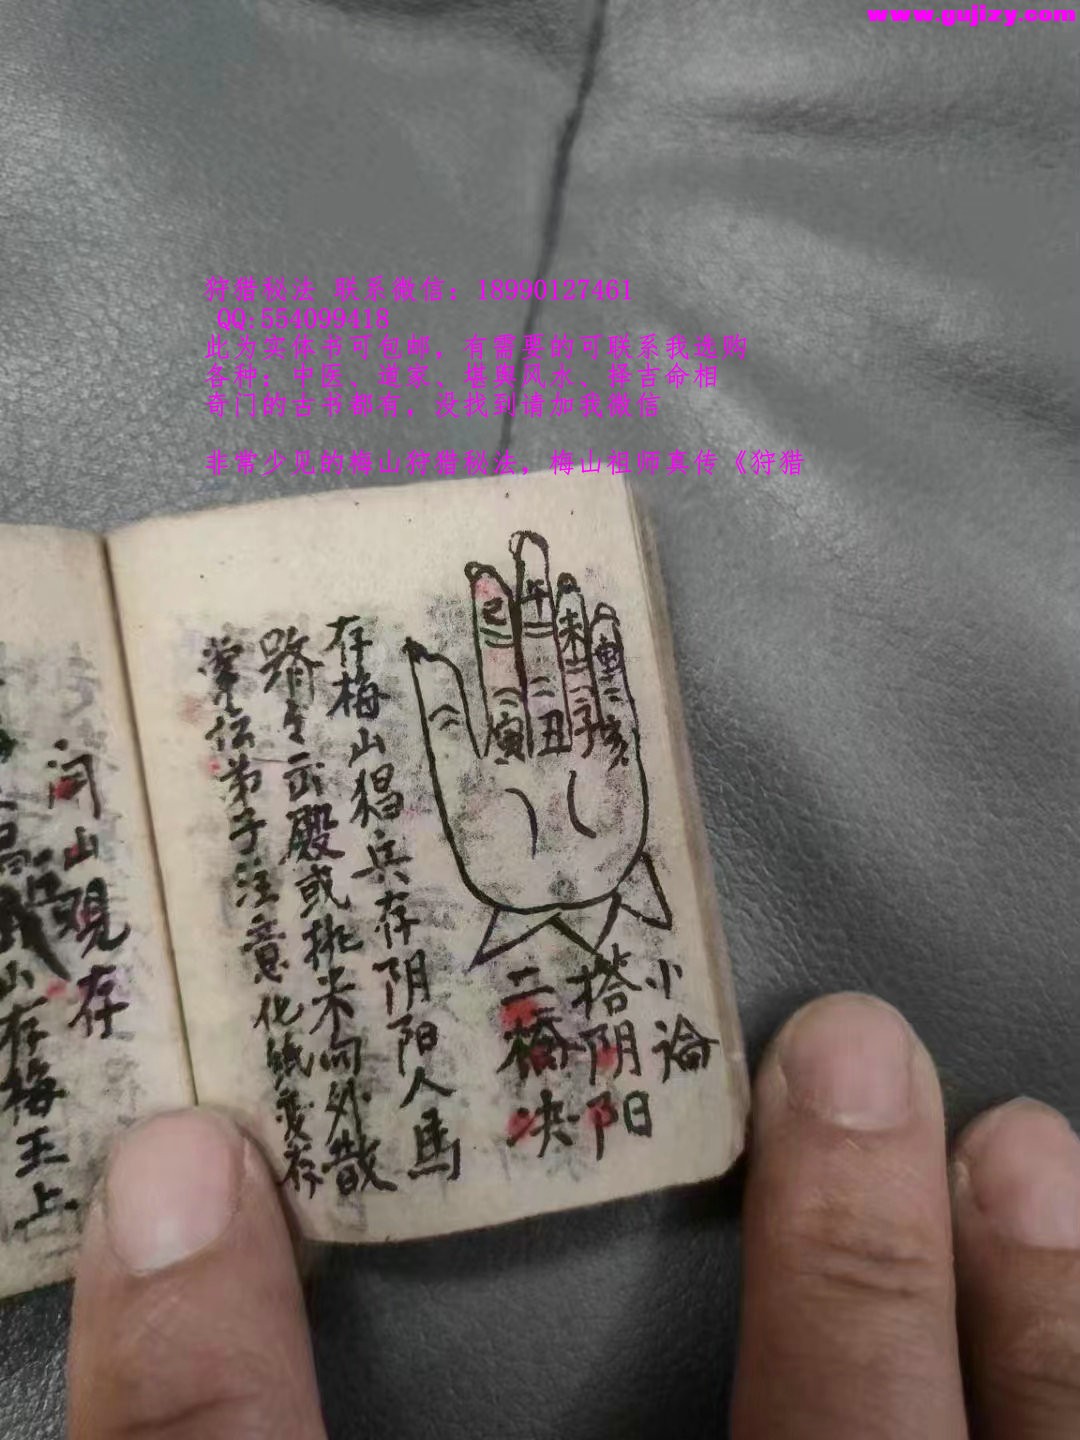 www.gujizy.com
狩猎秘法 联系微信：18990127461
QQ:554099418
此为实体书可包邮，有需要的可联系我选购
各种：中医、道家、堪舆风水、择吉命相
奇门的古书都有，没找到请加我微信
非常少见的梅山狩猎秘法，梅山祖师真传《狩猎
巳 午 未
寅 丑 子 亥
小论
搭阴阳
二桥决
存梅山猖兵存阴阳人馬
路々云殿或挑米向外散
掌伝弟子注意化纸变存
闾山观存
山存梅王上